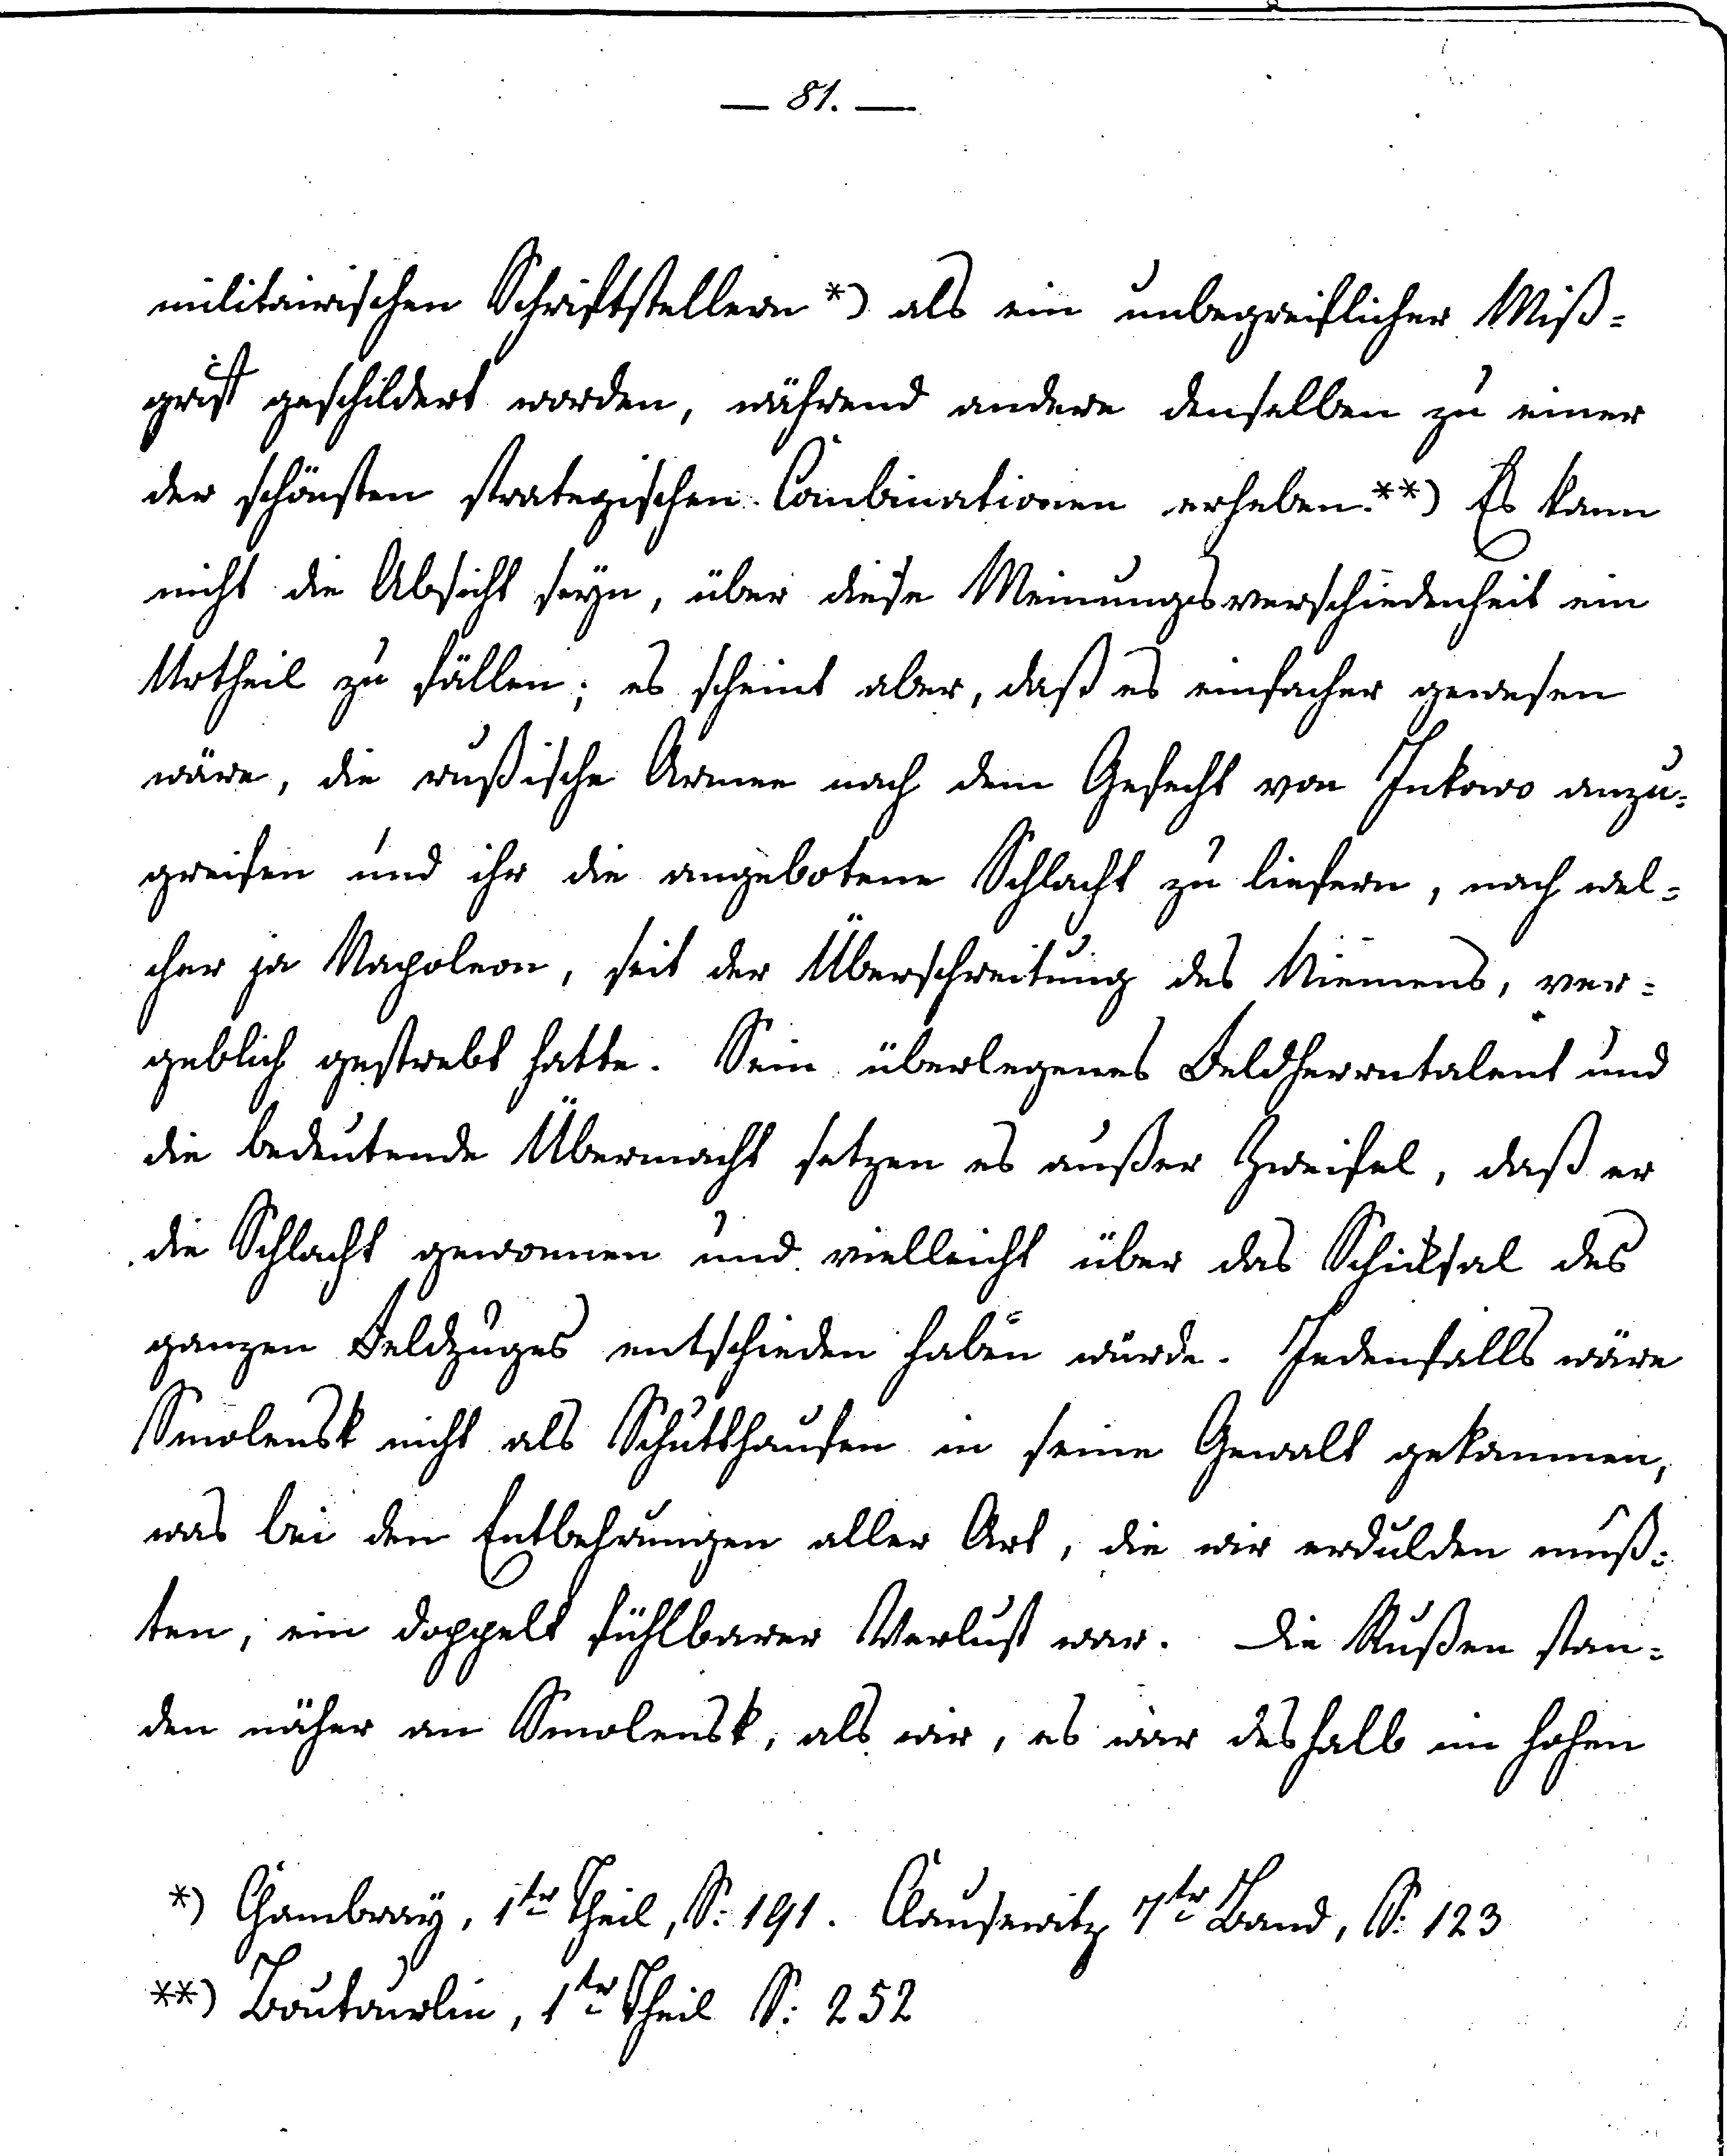 — 81. —
militairischen Schriftstellern *) als ein unbegreiflicher Miß-
griff geschildert worden, während andere denselben zu einer
der schönsten strategischen Combinationen erheben. **) Es kann
nicht die Absicht seyn, über diese Meinungsverschiedenheit ein
Urtheil zu fällen; es scheint aber, daß es einfacher gewesen
wäre, die rußische Armee nach dem Gefecht von Inkowo anzu-
greifen und ihr die angebotene Schlacht zu liefern, nach wel-
cher ja Napoleon, seit der Überschreitung des Niemens, ver-
geblich gestrebt hatte. Sein überlegenes Feldherrntalent und
die bedeutende Übermacht setzen es außer Zweifel, daß er
die Schlacht gewonnen und vielleicht über das Schicksal des
ganzen Feldzuges entschieden haben würde. Jedenfalls wäre
Smolensk nicht als Schutthaufen in seine Gewalt gekommen,
was bei den Entbehrungen aller Art, die wir erdulden muß-
ten, ein doppelt fühlbarer Verlust war. Die Rußen stan-
den näher an Smolensk, als wir, es war deshalb im hohen
*) Chambray, 1ter Theil, S: 191. Clausewitz 7ter Band, S: 123
**) Boutourlin, 1ter Theil S: 252